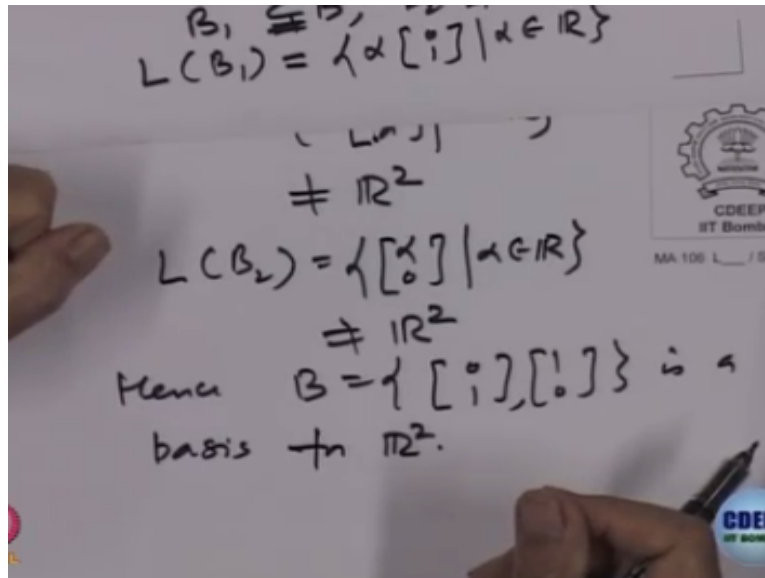 B₁ ⊊ B,
L(B₁) = {α [0 1] | α ∈ ℝ}
≠ ℝ²
L(B₂) = {[α 0] | α ∈ ℝ}
≠ ℝ²
Hence B = {[0 1], [1 0]} is a
basis for ℝ².
CDEEP
IIT Bomb
MA 106 L___ / S
CDEE
IIT BOM